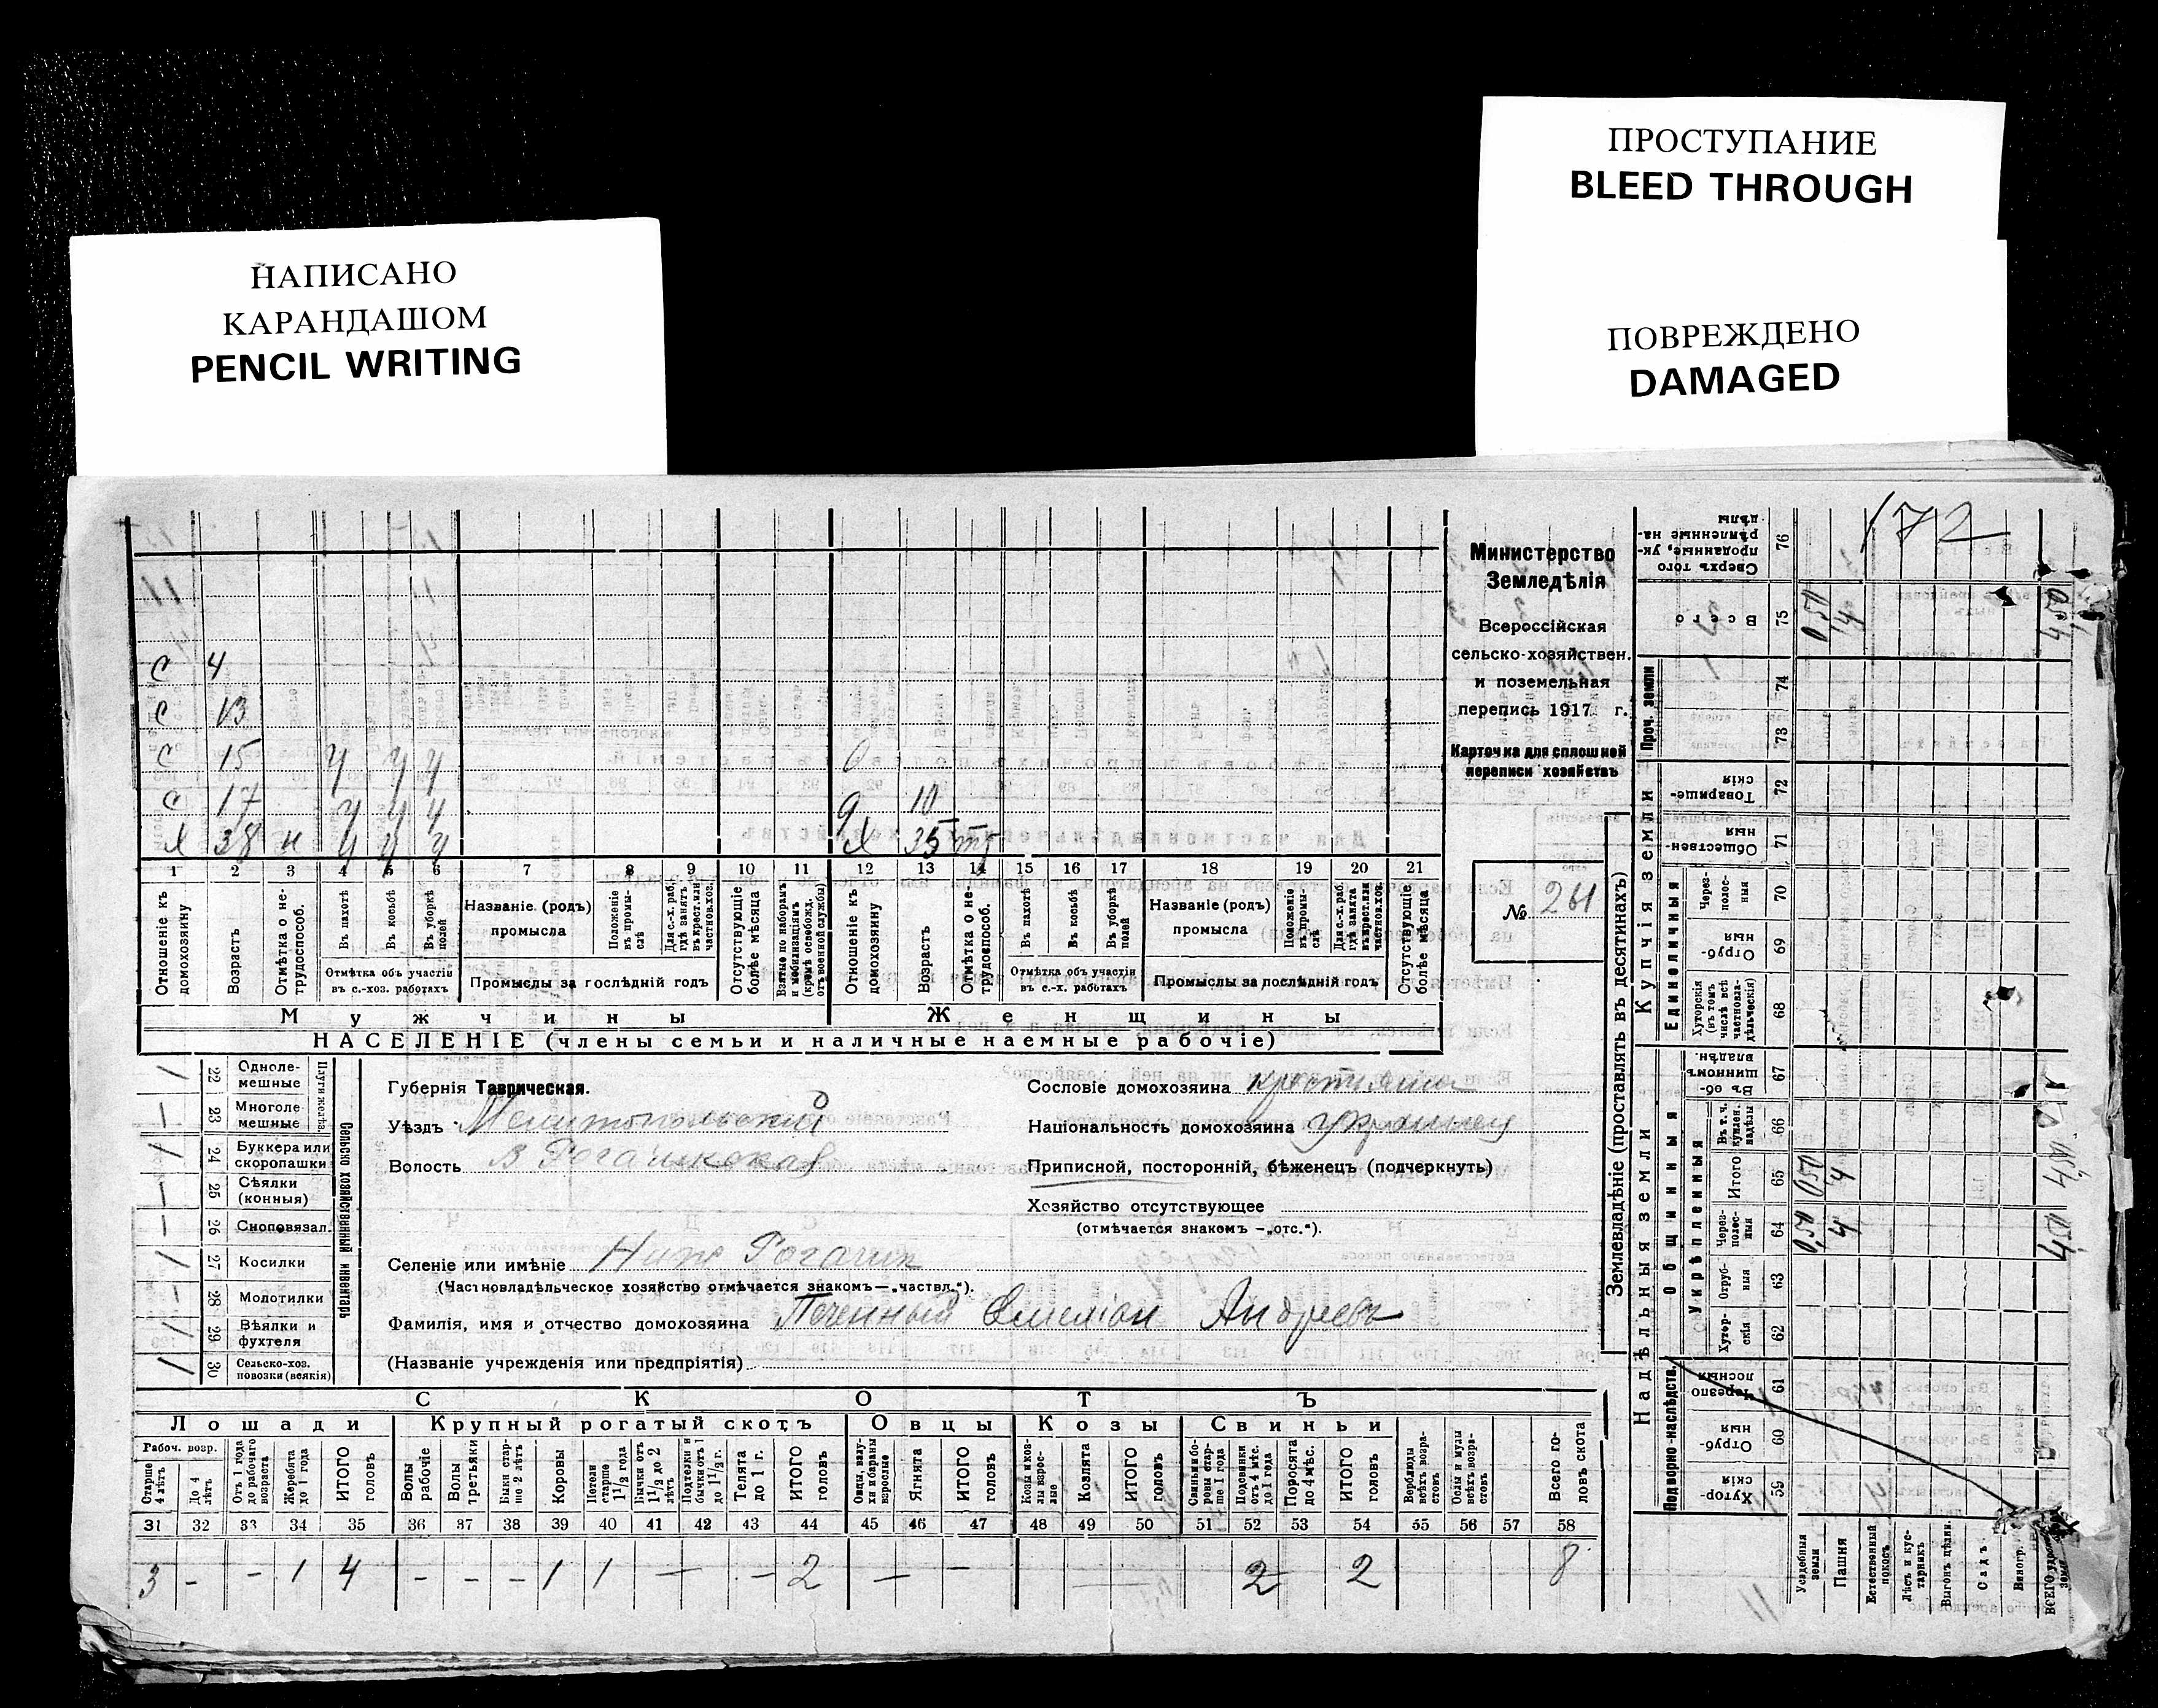 ПРОСТУПАНИЕ
BLEED THROUGH
НАПИСАНО
КАРАНДАШОМ
PENCIL WRITING
ПОВРЕЖДЕНО
DAMAGED
172
Министерство
Земледѣлія
Всероссійская
сельско-хозяйствен.
и поземельная
перепись 1917 г.
Карточка для сплошной
переписи хозяйствъ
№ 261
с 4
с 13
с 15 у у у
с 17 у у у д 10
х 38 н у у у х 35
1 2 3 4 5 6 7 8 9 10 11 12 13 14 15 16 17 18 19 20 21
Отношеніе къ домохозяину
Возрастъ
Отмѣтка о не-трудоспособ.
Въ пахотѣ
Въ косьбѣ
Въ уборкѣ полей
Отмѣтка объ участіи въ с.-хоз. работахъ
Названіе (родъ) промысла
Положеніе въ промы-слѣ
Для с.-х. раб. гдѣ занятъ въ крест. или частнов. хоз.
Промыслы за послѣдній годъ
Отсутствующіе болѣе мѣсяца
Взятые по наборамъ и мобилизаціямъ (кромѣ освобожд. отъ военной службы)
Отношеніе къ домохозяину
Возрастъ
Отмѣтка о не-трудоспособ.
Въ пахотѣ
Въ косьбѣ
Въ уборкѣ полей
Отмѣтка объ участіи въ с.-х. работахъ
Названіе (родъ) промысла
Положеніе въ промы-слѣ
Для с.-х. раб. гдѣ занята въ крест. или частнов. хоз.
Промыслы за послѣдній годъ
Отсутствующіе болѣе мѣсяца
Мужчины Женщины
НАСЕЛЕНІЕ (члены семьи и наличные наемные рабочіе)
Сельско хозяйственный инвентарь
Плуги желѣз.
/ 22 Однолемешные
— 23 Многолемешные
/ 24 Буккера или скоропашки
— 25 Сѣялки (конныя)
— 26 Сноповязал.
/ 27 Косилки
— 28 Молотилки
/ 29 Вѣялки и фухтеля
/ 30 Сельско-хоз. повозки (всякія)
Губернія Таврическая.
Уѣздъ Мелитопольскій
Волость В Рогачикская
Селеніе или имѣніе Ниж Рогачик
(Частновладѣльческое хозяйство отмѣчается знакомъ—„частвл.“).
Фамилія, имя и отчество домохозяина Печенный Емеліан Андреевъ
(Названіе учрежденія или предпріятія)
Сословіе домохозяина крестьянин
Національность домохозяина украинец
Приписной, посторонній, бѣженецъ (подчеркнуть)
Хозяйство отсутствующее
(отмѣчается знакомъ —„отс.“).
СКОТЪ
Лошади Крупный рогатый скотъ Овцы Козы Свиньи
Рабоч. возр.
Старше 4 лѣтъ
До 4 лѣтъ
Отъ 1 года до рабочаго возраста
Жеребята до 1 года
ИТОГО головъ
Волы рабочіе
Волы третьяки
Быки стар-ше 2 лѣтъ
Коровы
Нетели старше 1½ года
Бычки отъ 1½ до 2 лѣтъ
Подтелки и бычки отъ 1 до 1½ г.
Телята до 1 г.
ИТОГО головъ
Овцы, валу-хи и бараны взрослые
Ягнята
ИТОГО головъ
Козы и коз-лы взрос-лые
Козлята
ИТОГО головъ
Свиньи бо-ровы стар-ше 1 года
Подсвинки отъ 4 мѣс. до 1 года
Поросята до 4 мѣс.
ИТОГО головъ
Верблюды всѣхъ возра-стовъ
Ослы и мулы всѣхъ возра-стовъ
Всего го-ловъ скота
31 32 33 34 35 36 37 38 39 40 41 42 43 44 45 46 47 48 49 50 51 52 53 54 55 56 57 58
3 - - 1 4 - - - 1 1 — - 2 — — 2 2 8
Землевладѣніе (проставлять въ десятинахъ)
Надѣльныя земли
Купчія земли
Проч. земли
Подворно-наслѣдств.
Общинныя
Укрѣпленныя
Единоличныя
76 Сверхъ того проданные, ук-рѣпленные на-дѣлы
75 Всего 0,50 4
74
73
72 Товарище-скія
71 Обществен-ныя
70 Через-полос-ныя
69 Отруб-ныя
68 Хуторскія (въ томъ числѣ всѣ частновла-дѣльческія)
67 Въ об-щинномъ владѣн.
66 Въ т. ч. куплен. надѣлы
65 Итого 0,50 4
64 Через-полос-ныя 0,50 4 4,50
63 Отруб-ныя
62 Хутор-скія
61 Черезпо-лосныя
60 Отруб-ныя
59 Хутор-скія
Усадебныя земли
Пашня
Естественный покосъ
Лѣсъ и кус-тарникъ
Выгонъ цѣлин.
Садъ
Виногр.